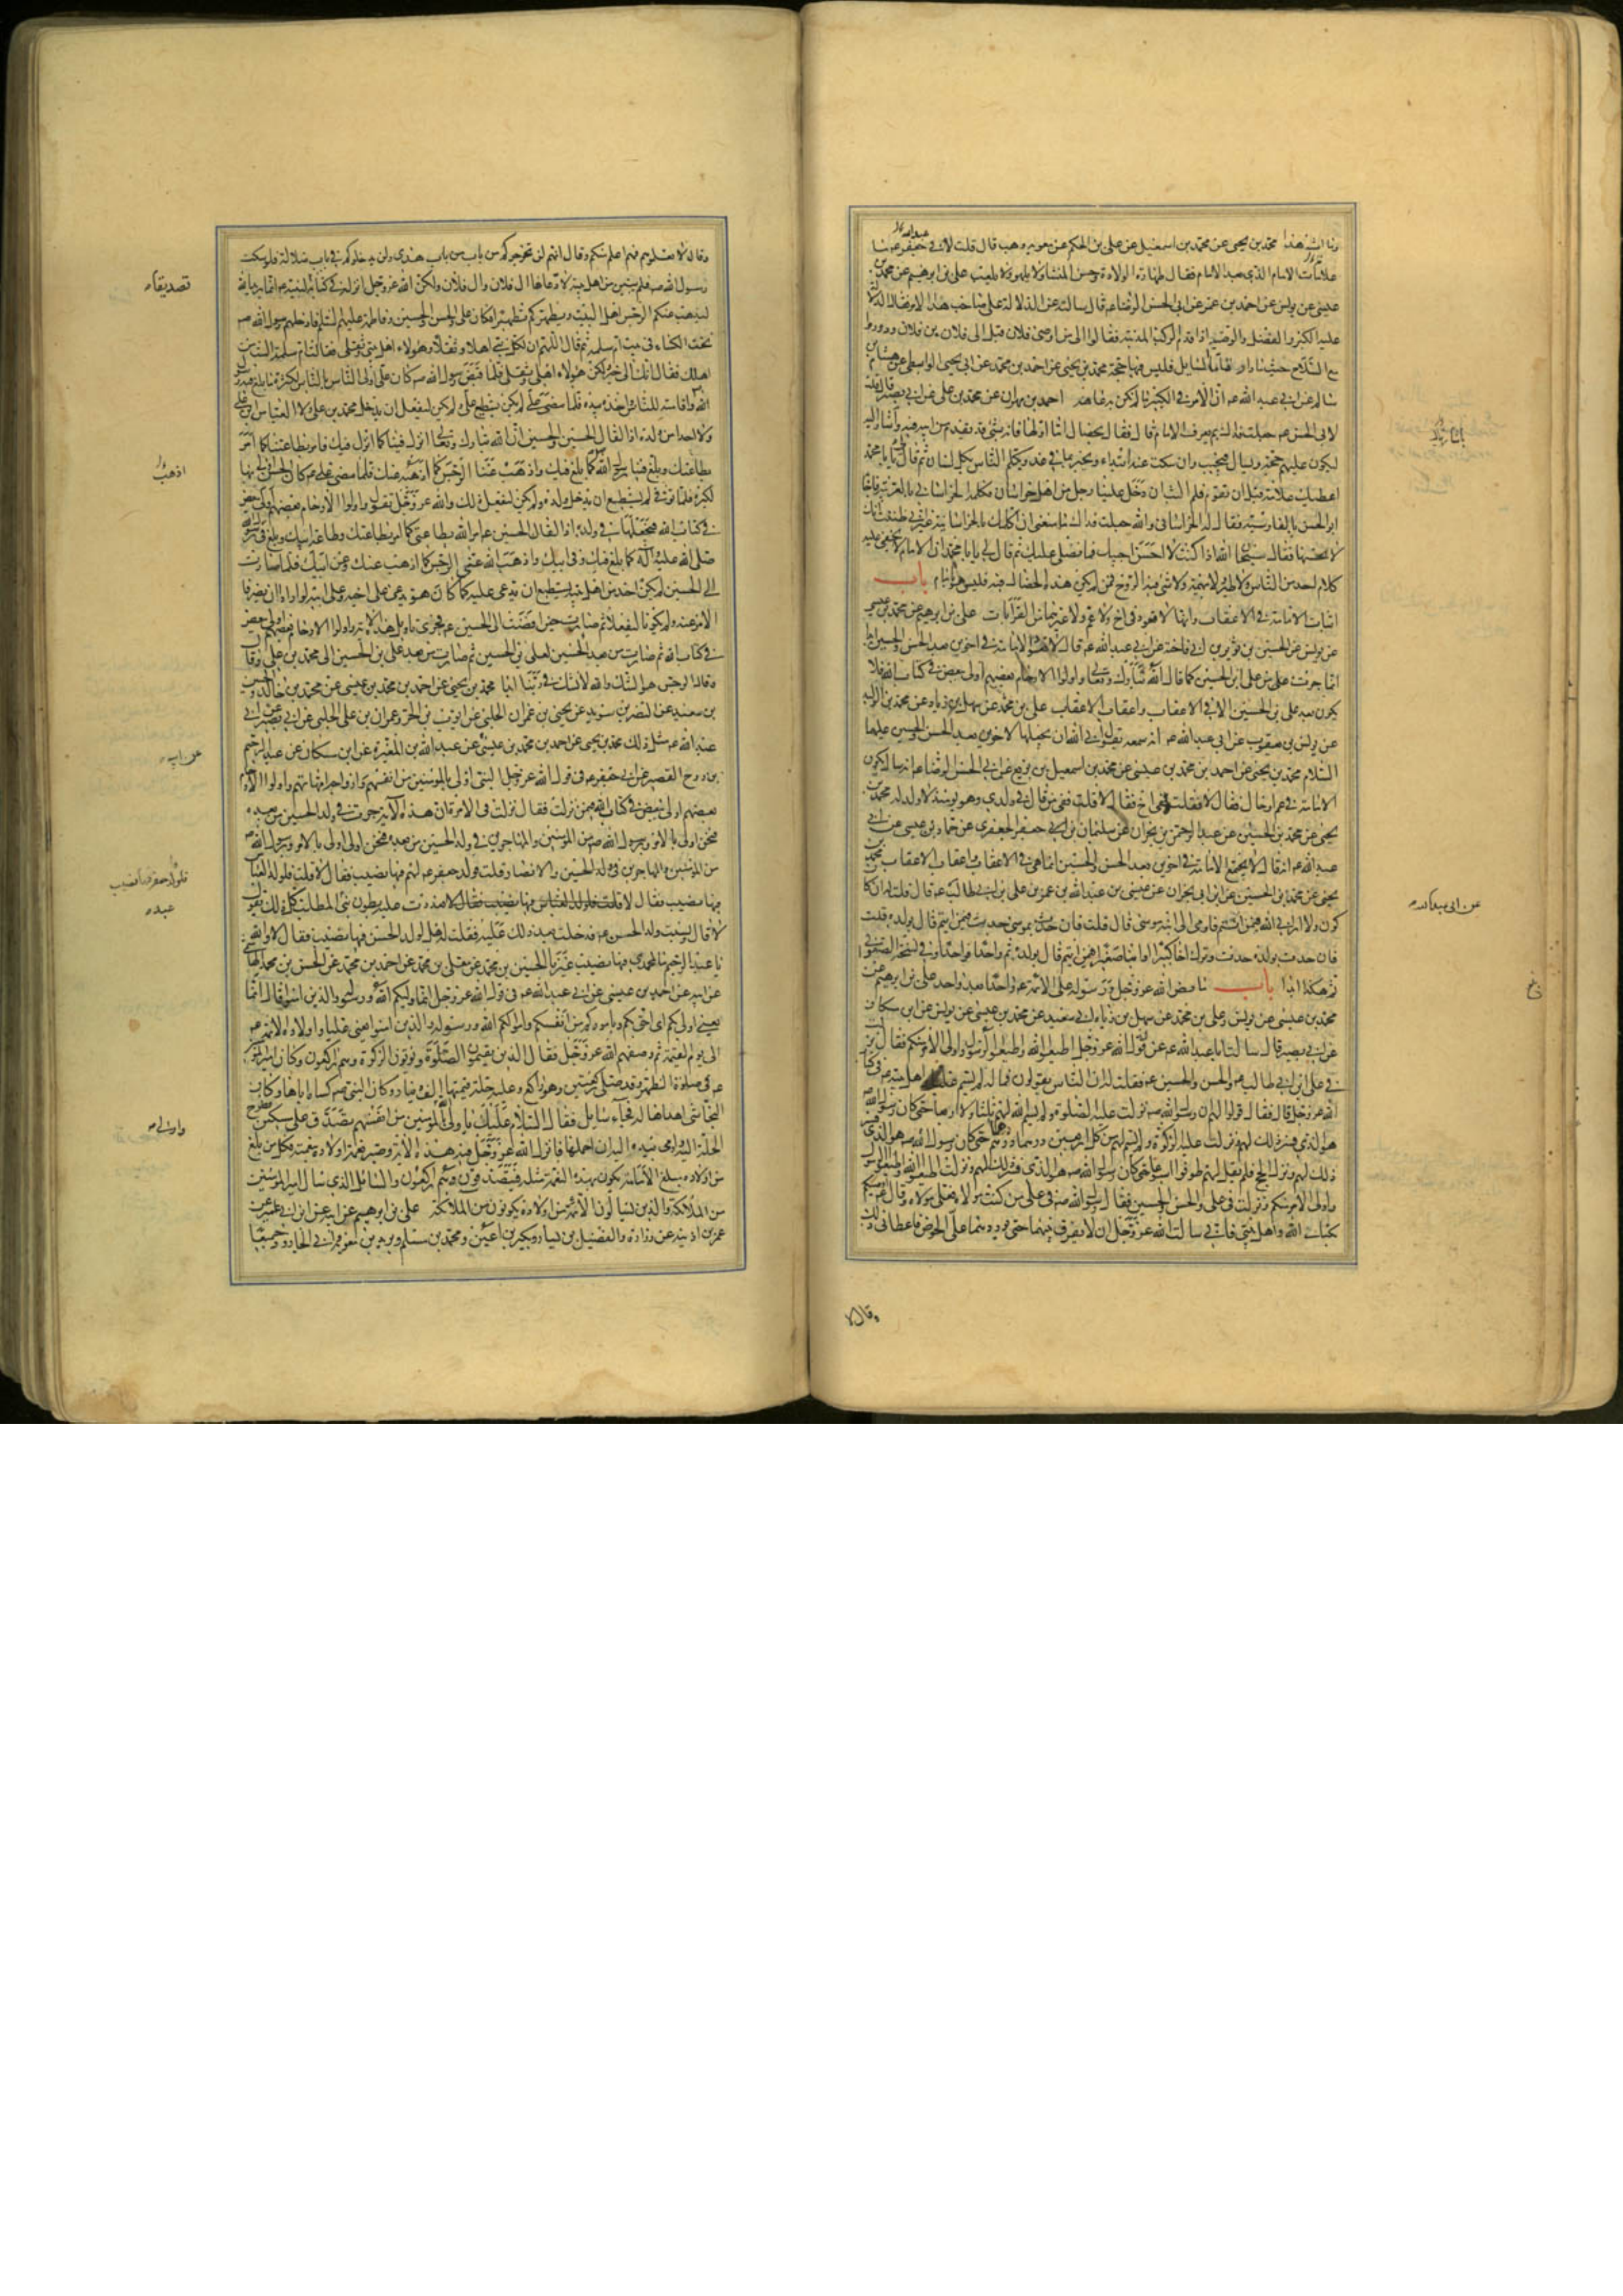 وما اشبه هذا محمد بن يحيى عن محمد بن اسمعيل عن علي بن الحكم عن معوية بن وهب قال قلت لابي جعفر عم ما
علامات الامام الذي بعد الامام فقال طهارة الولادة وحسن المنشاء ولا يلهو ولا يلعب علي بن ابرهيم عن محمد بن
عيسى عن يونس عن احمد بن عمر عن ابي الحسن الرضا عم قال سالته عن الدلالة على صاحب هذا الامر فقال الدلالة
عليه الكبر والفضل والوصية اذا قدم الركب المدينة فقالوا الى من اوصى فلان قيل الى فلان بن فلان ودوروا
مع السلاح حيث ما دار فاما المسايل فليس فيها حجة محمد بن يحيى عن احمد بن محمد عن ابي يحيى الواسطي عن هشام بن
سالم عن ابي عبد الله عم ان الامر في الكبير ما لم تكن به عاهة احمد بن مهران عن محمد بن علي عن ابي بصير قال قلت
لابي الحسن عم جعلت فداك بم يعرف الامام قال فقال بخصال اما اولها فانه بشئ قد تقدم من ابيه فيه واشار اليه
ليكون عليهم حجة ويسال فيجيب وان سكت عنه ابتداء ويخبر بما في غد ويكلم الناس بكل لسان ثم قال لي يا با محمد
اعطيك علامة قبل ان تقوم فلم البث ان دخل علينا رجل من اهل خراسان فكلمه الخراساني بالعربية فاجابه
ابو الحسن بالفارسية فقال له الخراساني والله جعلت فداك ما منعني ان اكلمك بالخراسانية غير اني ظننت انك
لا تحسنها فقال سبحان الله اذا كنت لا احسن اجيبك فما فضلي عليك ثم قال لي يا با محمد ان الامام لا يخفى عليه
كلام احد من الناس ولا طير ولا بهيمة ولا شئ فيه الروح فمن لم يكن هذه الخصال فيه فليس هو بامام باب
اثبات الامامة في الاعقاب وانها لا تعود في اخ ولا عم ولا غيرهما من القرابات علي بن ابرهيم عن محمد بن عيسى
عن يونس عن الحسين بن ثوير بن ابي فاختة عن ابي عبد الله عم قال لا تعود الامامة في اخوين بعد الحسن والحسين ابدا
انما جرت من علي بن الحسين كما قال الله تبارك وتعالى واولوا الارحام بعضهم اولى ببعض في كتاب الله فلا
يكون بعد علي بن الحسين الا في الاعقاب واعقاب الاعقاب علي بن محمد عن سهل بن زياد عن محمد بن الوليد
عن يونس بن يعقوب عن ابي عبد الله عم انه سمعه يقول ابى الله ان يجعلها لاخوين بعد الحسن والحسين عليهما
السلام محمد بن يحيى عن احمد بن محمد بن عيسى عن محمد بن اسمعيل بن بزيع عن ابي الحسن الرضا عم انه سال ايكون
الامامة في عم او خال فقال لا فقلت ففي اخ فقال لا قلت ففي من قال في ولدي وهو يومئذ لا ولد له محمد بن
يحيى عن محمد بن الحسين عن عبد الرحمن بن نجران عن سليمان بن ابي جعفر الجعفري عن حماد بن عيسى عن ابي
عبد الله عم انه قال لا يجتمع الامامة في اخوين بعد الحسن والحسين انما هي في الاعقاب واعقاب الاعقاب محمد بن
يحيى عن محمد بن الحسين عن ابن ابي نجران عن عيسى بن عبد الله بن عمر بن علي بن ابي طالب عم قال قلت له ان كان
كون ولا اراني الله فبمن ائتم فاومى الى ابنه موسى قال قلت فان حدث بموسى حدث فبمن ائتم قال بولده قلت
فان حدث بولده حدث وترك اخا كبيرا او ابنا صغيرا فبمن ائتم قال بولده ثم واحدا فواحدا وفي نسخة الصفواني
ثم هكذا ابدا باب ما نص الله عز وجل ورسوله على الائمة عم واحدا بعد واحد علي بن ابرهيم عن
محمد بن عيسى عن يونس وعلي بن محمد عن سهل بن زياد ابي سعيد عن محمد بن عيسى عن يونس عن ابن مسكان
عن ابي بصير قال سالت ابا عبد الله عم عن قول الله عز وجل اطيعوا الله واطيعوا الرسول واولي الامر منكم فقال نزلت
في علي ابن ابي طالب عم والحسن والحسين عم فقلت له ان الناس يقولون فما له لم يسم عليا واهل بيته عم في كتاب
الله عز وجل قال فقال قولوا لهم ان رسول الله صم نزلت عليه الصلوة ولم يسم الله لهم ثلثا ولا اربعا حتى كان رسول الله
هو الذي فسر ذلك لهم ونزلت عليه الزكوة ولم يسم لهم من كل اربعين درهما درهم حتى كان رسول الله صم هو الذي فسر
ذلك لهم ونزل الحج فلم يقل لهم طوفوا اسبوعا حتى كان رسول الله صم هو الذي فسر ذلك لهم ونزلت اطيعوا الله واطيعوا الرسول
واولي الامر منكم ونزلت في علي والحسن والحسين فقال رسول الله صم في علي من كنت مولاه فعلي مولاه وقال اوصيكم
بكتاب الله واهل بيتي فاني سالت الله عز وجل ان لا يفرق بينهما حتى يوردهما علي الحوض فاعطاني ذلك
وقال لا
عن ابي عبد الله
وقال لا تعلموهم فهم اعلم منكم وقال انهم لن يخرجوكم من باب هدى ولن يدخلوكم في باب ضلالة فلو سكت
رسول الله صم فلم يبين من اهل بيته لادعاها ال فلان وال فلان ولكن الله عز وجل انزله في كتابه لنبيه عم انما يريد الله
ليذهب عنكم الرجس اهل البيت ويطهركم تطهيرا فكان علي والحسن والحسين وفاطمة عليهم السلام فادخلهم رسول الله صم
تحت الكساء في بيت ام سلمة ثم قال اللهم ان لكل نبي اهلا وثقلا وهولاء اهل بيتي وثقلي فقالت ام سلمة الست من
اهلك فقال انك الى خير ولكن هولاء اهلي وثقلي فلما قبض رسول الله صم كان علي اولى الناس بالناس لكثرة ما بلغ فيه رسول
الله واقامته للناس واخذه بيده فلما مضى علي لم يكن يستطيع علي ولم يكن ليفعل ان يدخل محمد بن علي ولا العباس بن علي
ولا احدا من ولده اذا لقال الحسن والحسين ان الله تبارك وتعالى انزل فينا كما انزل فيك فامر بطاعتنا كما امر
بطاعتك وبلغ فينا رسول الله كما بلغ فيك واذهب عنا الرجس كما اذهبه عنك فلما مضى علي عم كان الحسن اولى بها
لكبره فلما توفي لم يستطع ان يدخل ولده ولم يكن ليفعل ذلك والله عز وجل يقول واولوا الارحام بعضهم اولى ببعض
في كتاب الله فيجعلها في ولده اذا لقال الحسين عم امر الله بطاعتي كما امر بطاعتك وطاعة ابيك وبلغ في رسول الله
صلى الله عليه وآله كما بلغ فيك وفي ابيك واذهب الله عني الرجس كما اذهب عنك وعن ابيك فلما صارت
الى الحسين لم يكن احد من اهل بيته يستطيع ان يدعي عليه كما كان هو يدعي على اخيه وعلى ابيه لو ارادا ان يصرفا
الامر عنه ولم يكونا ليفعلا ثم صارت حين افضت الى الحسين عم فجرى تاويل هذه الاية واولوا الارحام بعضهم اولى ببعض
في كتاب الله ثم صارت من بعد الحسين لعلي بن الحسين ثم صارت من بعد علي بن الحسين الى محمد بن علي وقال
وقال الرجس هو الشك والله لا نشك في ربنا ابدا محمد بن يحيى عن احمد بن محمد بن عيسى عن محمد بن خالد والحسين
بن سعيد عن النضر بن سويد عن يحيى بن عمران الحلبي عن ايوب بن الحر وعمران بن علي الحلبي عن ابي بصير عن ابي
عبد الله عم مثل ذلك محمد بن يحيى عن احمد بن محمد بن عيسى عن عبد الله بن المغيرة عن ابن مسكان عن عبد الرحيم
بن روح القصير عن ابي جعفر عم في قول الله عز وجل النبي اولى بالمومنين من انفسهم وازواجه امهاتهم واولوا الارحام
بعضهم اولى ببعض في كتاب الله فيمن نزلت فقال نزلت في الامرة ان هذه الاية جرت في ولد الحسين من بعده
فنحن اولى بالامر وبرسول الله صم من المومنين والمهاجرين
من المومنين والمهاجرين والانصار قلت فولد جعفر عم لهم فيها نصيب فقال لا قلت فلولد العباس
فيها نصيب فقال لا فعددت عليه بطون بني المطلب كل ذلك يقول
لا قال ونسيت ولد الحسن عم فدخلت بعد ذلك عليه فقلت له هل لولد الحسن فيها نصيب فقال لا والله
يا عبد الرحيم ما لمحمدي فيها نصيب غيرنا الحسين بن محمد عن معلى بن محمد عن احمد بن محمد عن الحسن بن محمد الهاشمي
عن ابيه عن احمد بن عيسى عن ابي عبد الله عم في قول الله عز وجل انما وليكم الله ورسوله والذين امنوا قال انما
يعني اولى بكم اي احق بكم وباموركم من انفسكم واموالكم الله ورسوله والذين امنوا يعني عليا واولاده الائمة عم
الى يوم القيمة ثم وصفهم الله عز وجل فقال الذين يقيمون الصلوة ويوتون الزكوة وهم راكعون وكان امير المومنين
عم في صلوة الظهر وقد صلى ركعتين وهو راكع وعليه حلة قيمتها الف دينار وكان النبي صم كساه اياها وكان
النجاشي اهداها له فجاء سايل فقال السلام عليك يا ولي الله واولى بالمومنين من انفسهم تصدق على مسكين فطرح
الحلة اليه واومى بيده اليه ان احملها فانزل الله عز وجل فيه هذه الاية وصير نعمة اولاده بنعمته فكل من بلغ
من اولاده مبلغ الامامة يكون بهذه النعمة مثله فيتصدقون وهم راكعون والسائل الذي سال امير المومنين
من الملائكة والذين يسالون الائمة من اولاده يكونون من الملائكة علي بن ابرهيم عن ابيه عن ابن ابي عمير عن
عمر بن اذينة عن زرارة والفضيل بن يسار وبكير بن اعين ومحمد بن مسلم وبريد بن معوية وابي الجارود جميعا
تصديقا
اذهب
عن ابيه
عبده